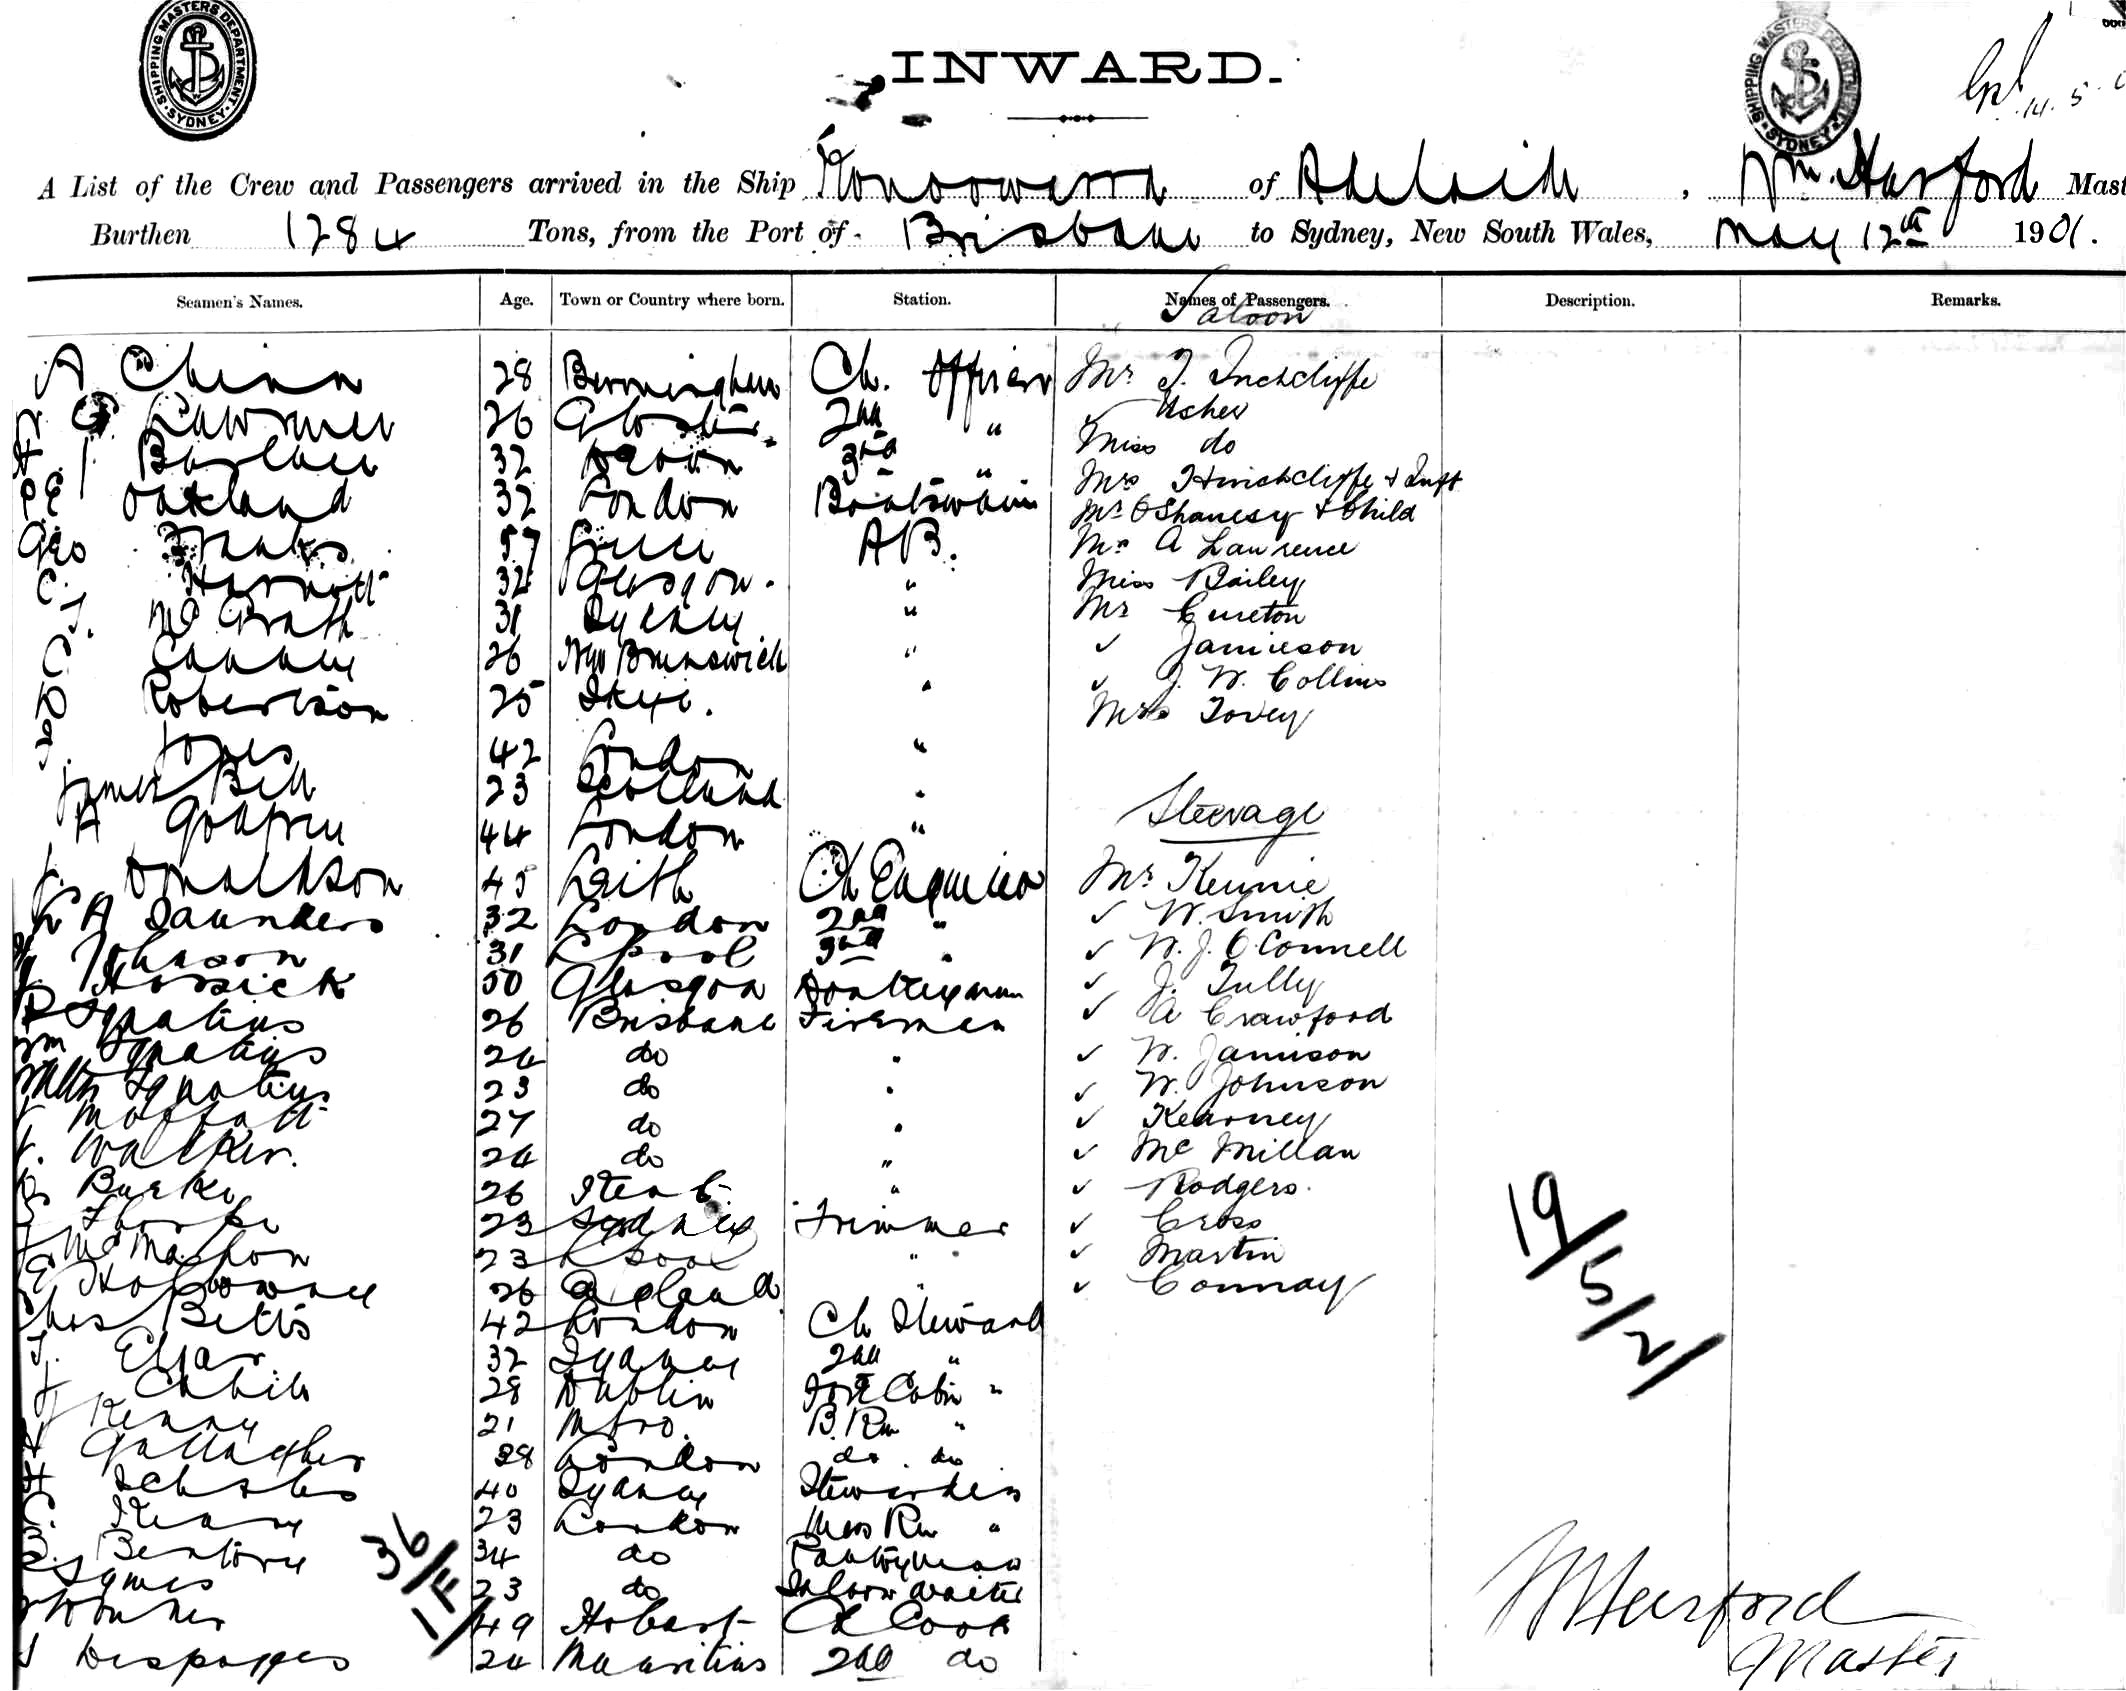 SHIPPING MASTERS DEPARTMENT. SYDNEY
INWARD.
SHIPPING MASTERS DEPARTMENT. SYDNEY
14. 5.
A List of the Crew and Passengers arrived in the Ship Konoowarra of Adelaide, Wm. Harford Mast
Burthen 1284 Tons, from the Port of Brisbane to Sydney, New South Wales, May 12th 1901.
Seamen's Names. Age. Town or Country where born. Station. Names of Passengers. Description. Remarks.
Saloon
A Chinn 28 Birmingham Ch. Officer Mr. T. Inchcliffe
26 Gloster 2nd " Usher
32 Devon 3rd " Miss do
Oakland 32 London Boatswain Mrs Hinchcliffe & Inft
Geo Franks 57 Greece AB. Mr O'Shanesy & Child
C. 32 Glasgow. " Mr A Lawrence
J. McGrath 31 Sydney " Miss Bailey
C 26 New Brunswick " Mr Cureton
R Robertson 25 Skye. " ✓ Jamieson
Jones 42 London " ✓ J. W. Collins
James Bell 23 Scotland " Mrs Tovey
A Godfrey 44 London "
Steerage
Donaldson 45 Leith Ch Engineer Mr. Kennie
A Saunders 32 London 2nd " ✓ W. Smith
Johnson 31 L'pool 3rd " ✓ W. J. O'Connell
Hossick 50 Glasgow Donkeyman ✓ J. Tully
P Ignatius 26 Brisbane Firemen ✓ A Crawford
Wm Ignatius 24 do " ✓ W. Jamison
Walter Ignatius 23 do " ✓ W. Johnson
Moffatt 27 do " ✓ Kearney
Walker. 24 do " ✓ Mc Millan
Burke 26 " ✓ Rodgers.
Thorpe 23 Sydney Trimmer ✓ Cross
McMahon 23 L'pool " ✓ Martin
E Holloway 26 England " ✓ Connay
Chas Betts 42 London Ch Steward
J. Elgar 32 Sydney 2nd "
J Cahill 28 Dublin Fore Cabin "
Kenny 21 Mbro. B. Rm "
Gallagher 38 London do. do
H Scholes 40 Sydney Stewardess
C. 23 London Mess Rm "
B. 34 do Pantryman
Symes 23 do Saloon Waiter
49 Hobart Ch Cook
24 Mauritius 2nd do
36/1F/
19/5/21
W Harford
Master